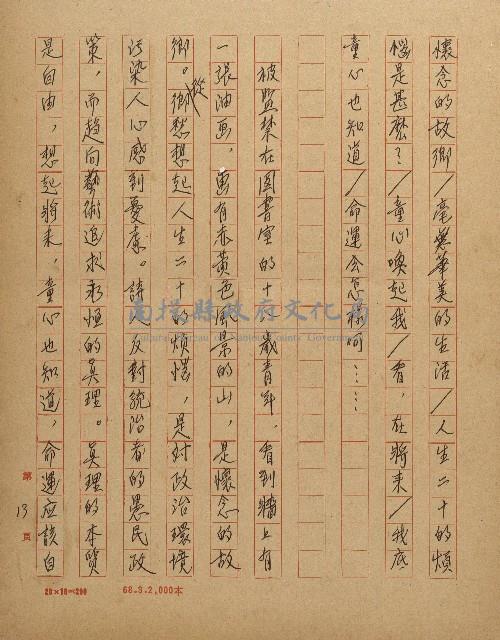 懷念的故鄉／毫無華美的生活／人生二十的煩
惱是甚麼？／童心喚起我／看，在將來／我底
童心也知道／命運会怎樣呵……
被監禁在圖書室的二十歲青年，看到牆上有
一張油画，画有赤黃色風景的山，是懷念的故
鄉。從鄉愁想起人生二十的煩惱，是對政治環境
污染人心感到憂慮。詩人反對統治者的愚民政
策，而趨向藝術追求永恒的真理。真理的本質
是自由，想起將來，童心也知道，命運应該自
第13頁
20×10=200
68.3.2,000本
南投縣政府文化局
Cultural Bureau of Nantou County Government